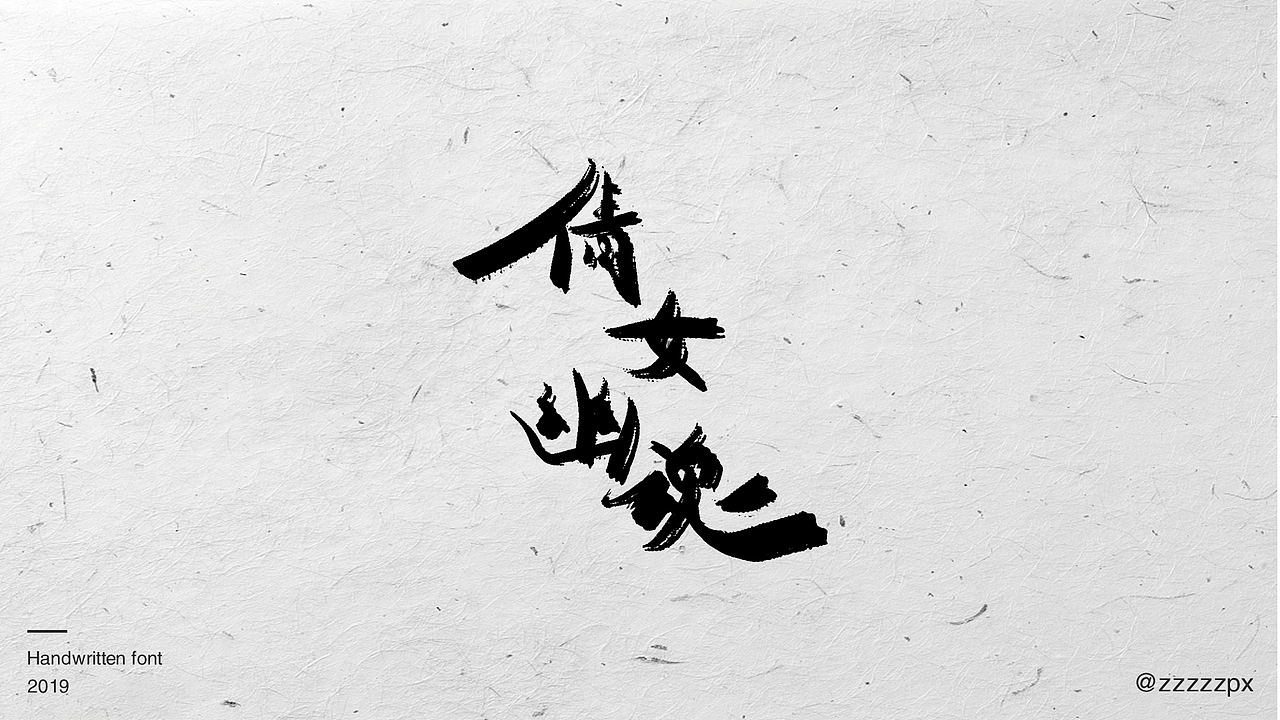 倩
女
幽
魂
Handwritten font
2019
@zzzzzpx